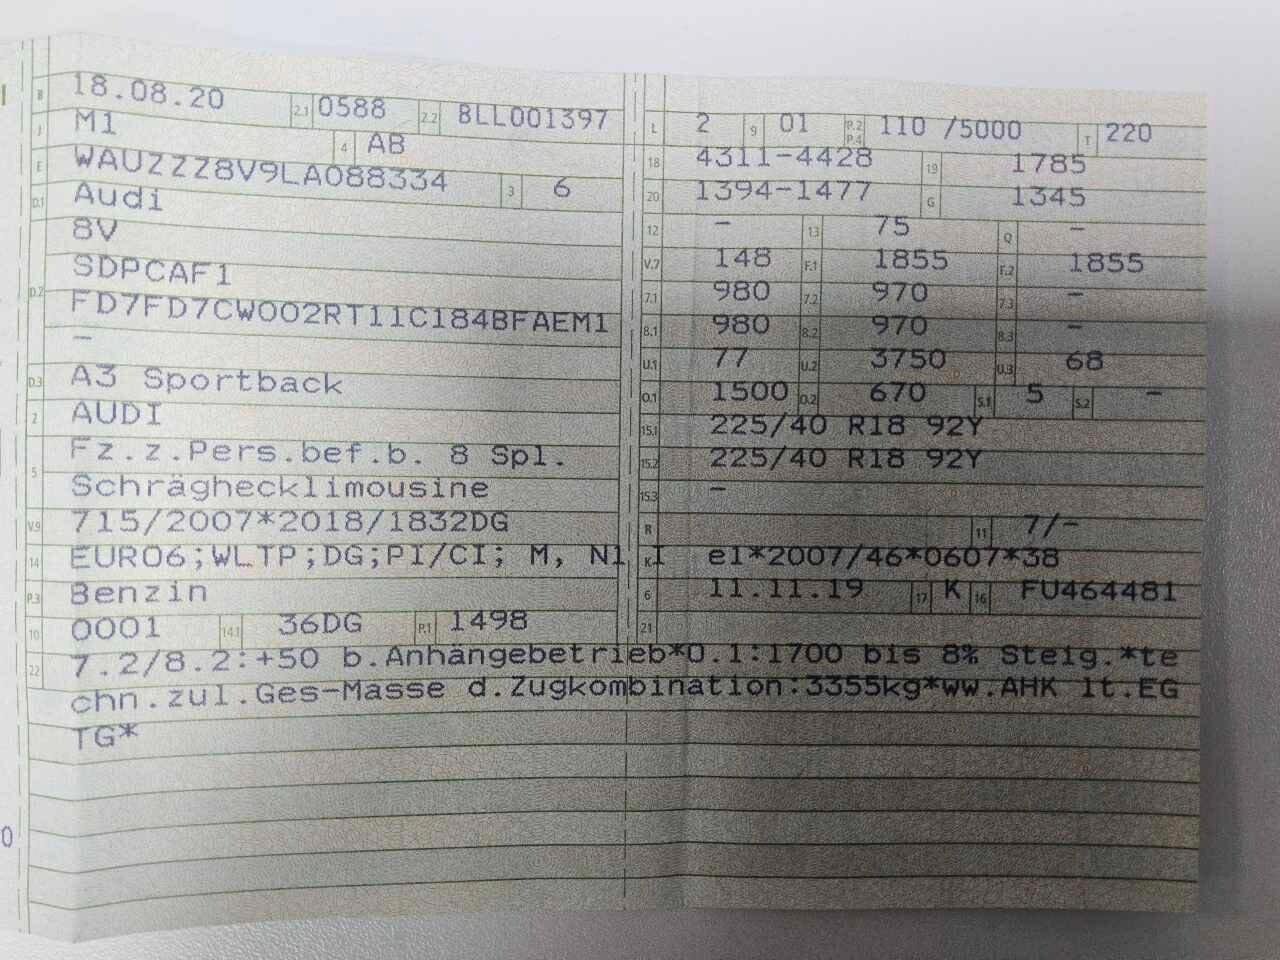 B 18.08.20 2.1 0588 2.2 BLL001397
J M1 4 AB
E WAUZZZ8V9LA088334 3 6
D.1 Audi
8V
D.2 SDPCAF1
FD7FD7CW002RT11C184BFAEM1
–
D.3 A3 Sportback
2 AUDI
5 Fz.z.Pers.bef.b. 8 Spl.
Schräghecklimousine
V.9 715/2007*2018/1832DG
14 EURO6;WLTP;DG;PI/CI; M, N1 I
P.3 Benzin
10 0001 14.1 36DG P.1 1498
L 2 9 01 P.2 P.4 110 /5000 T 220
18 4311-4428 19 1785
20 1394-1477 G 1345
12 – 13 75 Q –
V.7 148 F.1 1855 F.2 1855
7.1 980 7.2 970 7.3 –
8.1 980 8.2 970 8.3 –
U.1 77 U.2 3750 U.3 68
O.1 1500 O.2 670 S.1 5 S.2 –
15.1 225/40 R18 92Y
15.2 225/40 R18 92Y
15.3 –
R 11 7/-
K e1*2007/46*0607*38
6 11.11.19 17 K 16 FU464481
21
22 7.2/8.2:+50 b.Anhängebetrieb*O.1:1700 bis 8% Steig.*te
chn.zul.Ges-Masse d.Zugkombination:3355kg*ww.AHK lt.EG
TG*